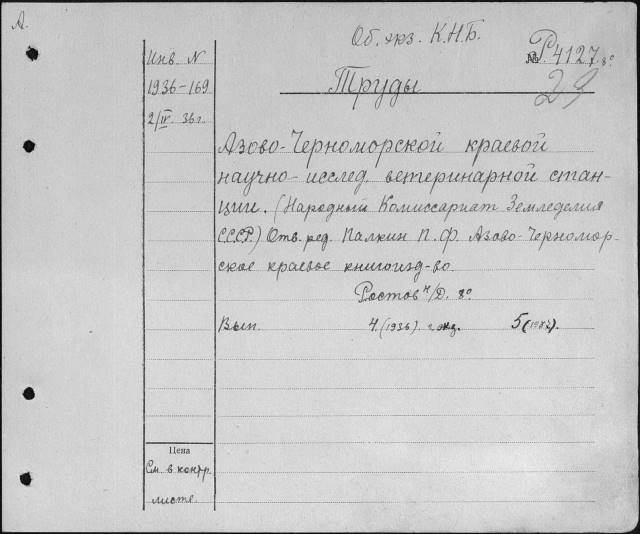 А.
Об. экз. К.Н.Б.
№ Р.4127.8°
29
Инв. N
1936-169
2/IV. 36 г.
Труды
Азово-Черноморской краевой
научно-исслед. ветеринарной стан-
ции. (Народный Комиссариат Земледелия
СССР.) Отв. ред. Палкин П.Ф. Азово-Черномор-
ское краевое книгоизд-во.
Ростов н/Д. 8°
Вып. 4. (1936). 2 экз. 5
Цена
См. в контр.
листе.